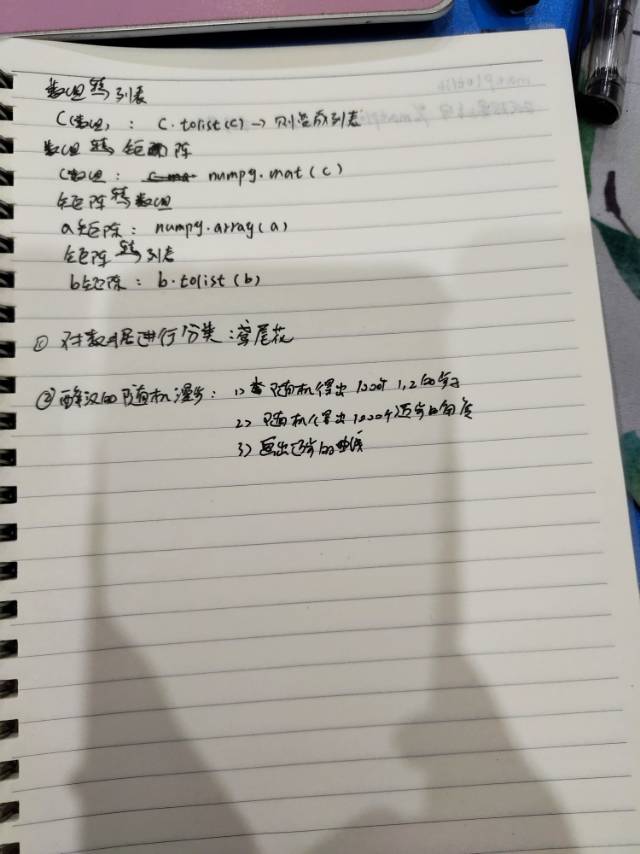 数组转列表
C数组,: C.tolist(c)→则变成列表
数组转矩阵
C数组: numpy.mat(c)
矩阵转数组
a矩阵: numpy.array(a)
矩阵转列表
b矩阵: b.tolist(b)
① 对数据进行分类:鸢尾花
②醉汉的随机漫步: 1) 随机得出1000个1,2的
2) 随机得出1000个迈步的角度
3) 画出的曲线
matplotlib